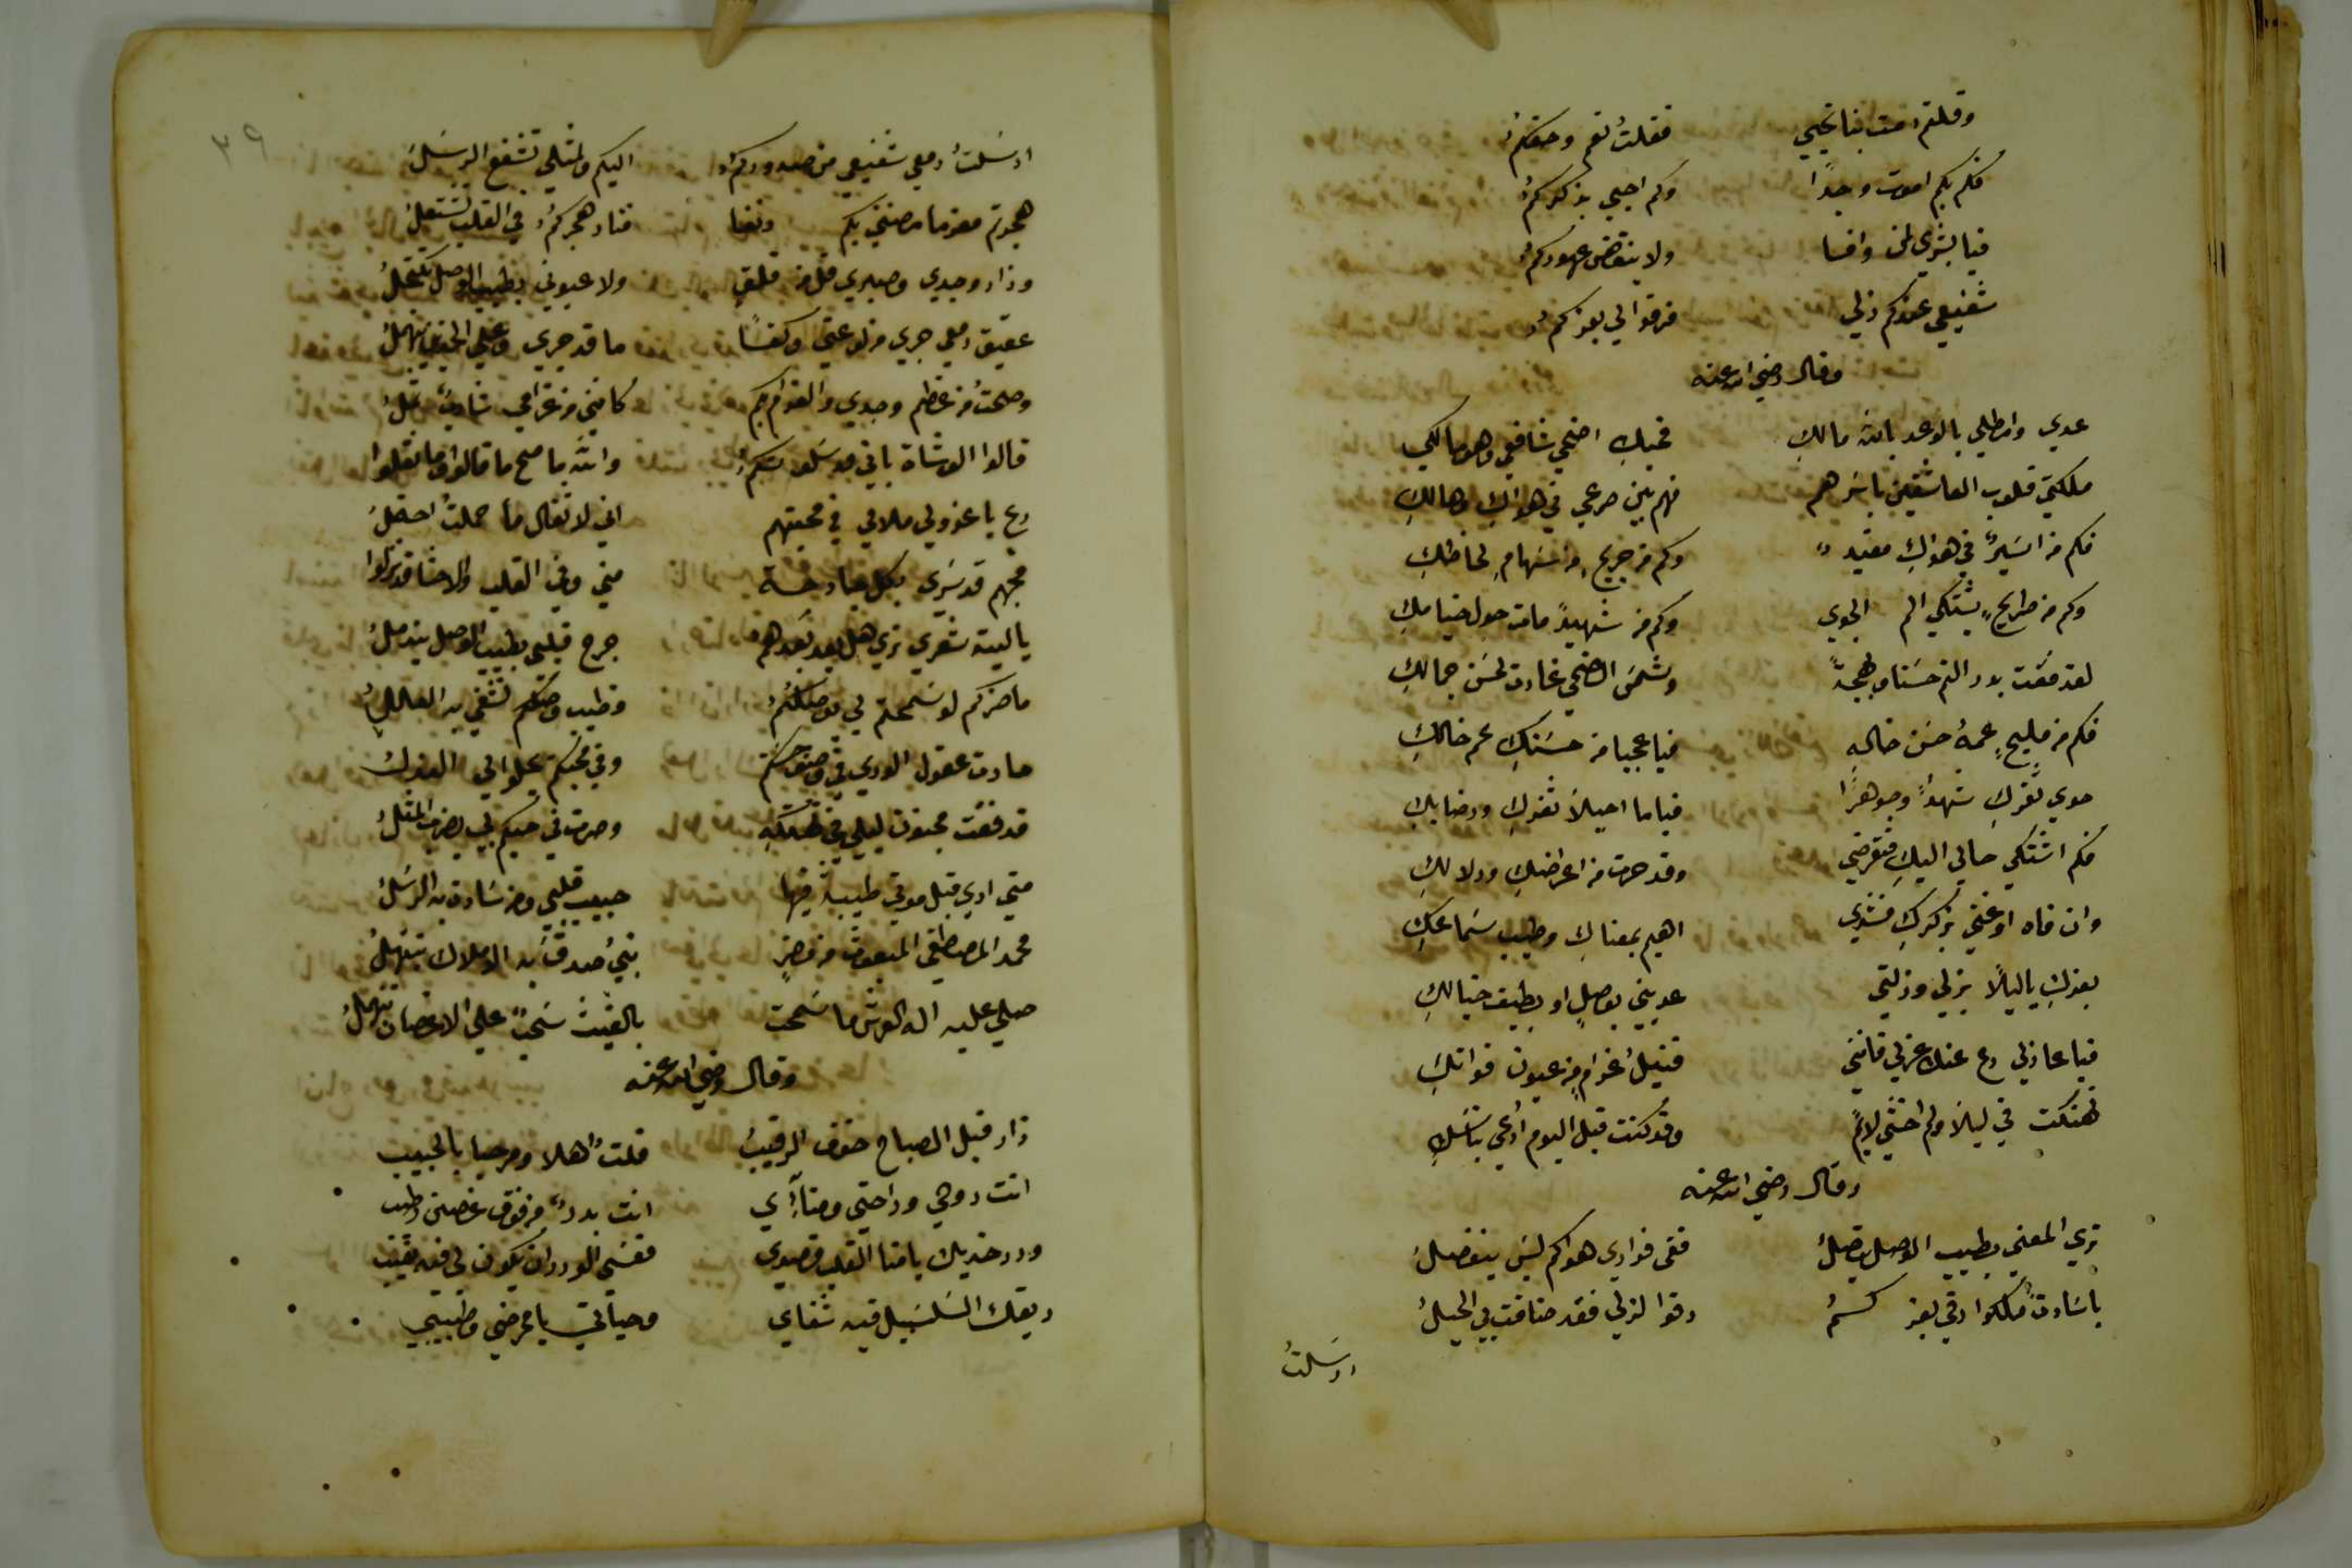 وقلتم مت بنا تحيي فقلت نعم وحقكم
فكم بكم اموت وجدًا وكم احيي بذكركم
فيا بشري لمن وافا ولا ينقض عهودكم
شفيعي عندكم ذلي فرقوا لي بعزكم
وقال رضي الله عنه
عدي وامطلي بالوعد يا بنة مالكِ فحبكِ اضحي شافعي وهو مالكي
ملكتي قلوب العاشقين باسرهم فهم بين صرعي في هواكِ وهالكِ
فكم من اسيرٌ في هواكِ مقيد وكم من جريحٍ من سهامِ لحاظكِ
وكم من طريحٍ يشتكي الم الجوي وكم من شهيدً مات حول خيامكِ
لقد فقت بدر التم حسنا وبهجةً وشمس الضحي غارت لحسن جمالكِ
فكم من مليحٍ عمهُ حسن خالهِ فيا عجبا من حسنكِ عم خالكِ
حوي ثغركِ شهدًا وجوهرًا فيا ما احيلا ثغركِ ورضابكِ
فكم اشتكي حالي اليكِ فتعرضي وقد حرت من اعراضكِ ودلالكِ
وان فاه او غني بذكركِ منشدي اهيم بمعناكِ وطيب سماعكِ
بعزكِ يا ليلًا بذلي وذلتي عديني بوصلٍ او بطيف خيالكِ
فيا عاذلي دع عنك عذلي فانني قتيلُ غرامٍ من عيون فواتكِ
تهتكت في ليلا ولم اخشي لايمً وقد كنت قبل اليوم ادعي بناسكِ
وقال رضي الله عنه
تري المعني بطيب الوصل يتصلُ ففي فوادي هواكم ليس ينفصلُ
يا سادةً ملكوا رقي بعزكمُ رقوا لذلي فقد ضاقت بي الحيلُ
ارسلتُ
٣٩
ارسلتُ دمعي شفيعي من صدودكم اليكم ولمثلي تشفع الرسلُ
هجرتم مغرما مضني بكم ونار هجركم في القلب تشتعلُ
وزاد وجدي وصبري قل من قلقي ولا عيوني بطيب الوصل تكتحلُ
عقيق دمعي جري من لوعتي وكفا ما قد جري وعلي الخدين ينهملُ
وصحتُ من عظم وجدي والغرام بكم كانني من غرامي شاربٌ ثملُ
قالوا الوشاة باني قد سلوتكم والله ما صح ما قالوا وما نقلوا
دع يا عذولي ملامي في محبتهم اني لاثقال ما حملتُ احتملُ
فحبهم قد سري بكل جارحة مني وفي القلب والاحشا قد نزلوا
يا ليت شعري تري هل بعد بعدهم جرح قلبي بطيب الوصل يندملُ
ما ضركم لو سمحتم لي بوصلكم وطيب وصلكم تشفي به العللُ
حارت عقول الوري في وصف حسنكم وفي محبتكم يحلوا لي الغزلُ
قد فقت مجنون ليلي في تهتكه وصرت في حبكم بي يضرب المثلُ
متي اري قبل موتي طيبة فيها حبيب قلبي ومن سادت به الرسلُ
محمد المصطفي المبعوث من مضرٍ نبيُ صدق به الاملاك تبتهلُ
صلي عليه اله العرش ما سمحت بالغيث سحبً علي الاغصان تنهملُ
وقال رضي الله عنه
زار قبل الصباح خوف الرقيبُ قلتُ اهلا ومرحبا بالحبيب
انت روحي وراحتي ومناآي انت بدرٌ من فوق غصن رطيب
ورد خديك يا منا القلب قصدي فعسي الورد ان يكون لي فيه نصيب
ريقك السلسبيل فيه شفاي وحياتي يا ممرضي وطبيبي